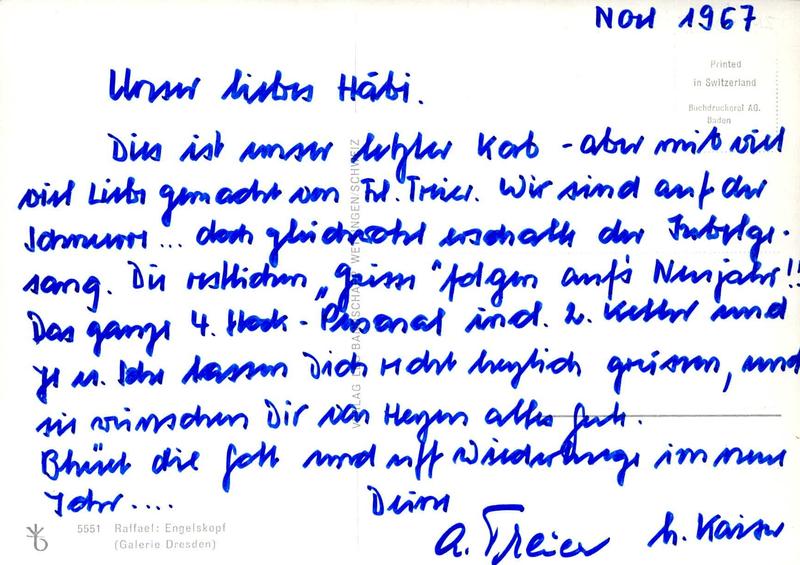 Nov 1967
Printed
in Switzerland
Buchdruckerei AG.
Baden
Unser liebes Häbi.
Dies ist unser letzter Korb - aber mit viel
viel Liebe gemacht von Frl. Treier. Wir sind auf der
... doch gleichwohl erschalle der Jubelge-
sang. Die restlichen „Grüsse" folgen auf's Neujahr!!
Das ganze 4. Stock - Personal incl. 2. Keller und
lassen Dich recht herzlich grüssen, und
sie wünschen Dir von Herzen alles Gute.
Bhüet die Gott und uff Wiederluege im neue
Johr.... Deine
A. Treier h. Kaiser
VERLAG WETTINGEN/SCHWEIZ
5551 Raffael: Engelskopf
(Galerie Dresden)